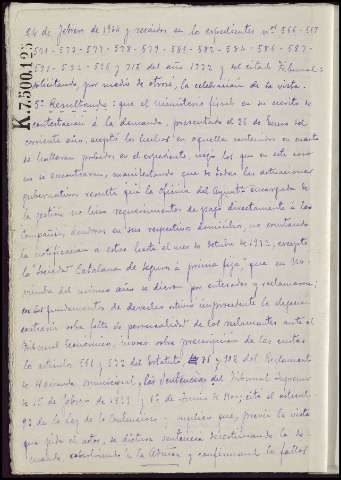 K.7.500.125
24 de febrero de 1934 y recaidos en los expedientes nºs 566-567
571-573-577-578-579-581-582-584-586-587-
591-592-596 y 718 del año 1932 y del citado Tribunal
solicitando, por medio de otrosí, la celebración de la vista.
5º Resultando: que el ministerio fiscal en su escrito de
contestación á la demanda, presentado el 26 de Enero del
corriente año, aceptó los hechos en aquella contenidos en cuanto
se hallaran probados en el expediente, negó los que en este caso
no se encontraran, manifestando que de todas las actuaciones
gubernativas resulta que la oficina del Ayuntº encargada de
la gestión no hizo requerimientos de pago directamente á las
Compañías deudoras en sus respectivos domicilios, no constando
la notificación a estas hasta el mes de Octubre de 1932, excepto
la "Sociedad Catalana de Seguros á prima fija" que en
del mismo año se dieron por enteradas y reclamaron;
en los fundamentos de derecho estimó improcedente la alegación
contraria sobre falta de personalidad de los reclamantes ante el
Tribunal Económico; invocó sobre prescripción de las cuotas
los artículos 561 y 572 del Estatuto y 102 del Reglamento
de Hacienda municipal, las Sentencias del Tribunal Supremo
de 1º de febrero de 1933 y de Junio de citó el artículo
92 de la Ley de lo Contencioso y suplicó que, previa la vista
que pide el actor, se dictara sentencia desestimando la de-
manda absolviendo a la Admón y confirmando los fallos